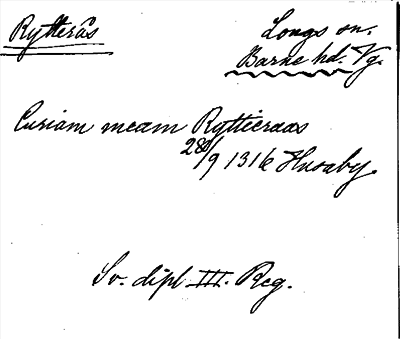 Rytterås
Longs sn.
Barne hd. Vg.
Curiam meam Ryttieraas
28/9 1316 Husaby.
Sv. dipl III. Reg.